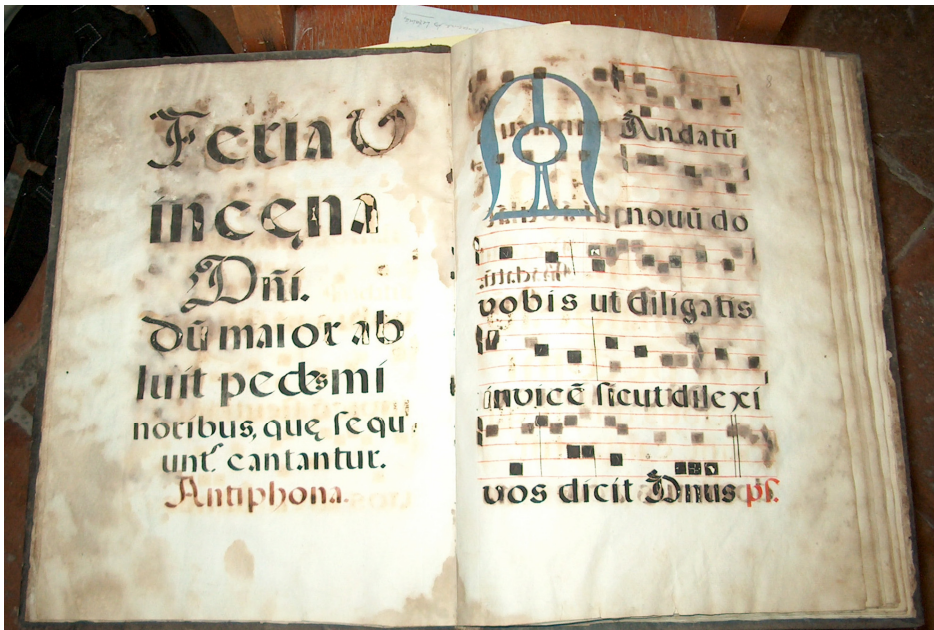 Feria V
in cęna
Dñi.
dũ maior ab
luit pedes mi
noribus, quę sequ
unt cantantur.
Antiphona.
Mandatũ
novũ do
vobis ut diligatis
invicẽ sicut dilexi
vos dicit Dñus ps.